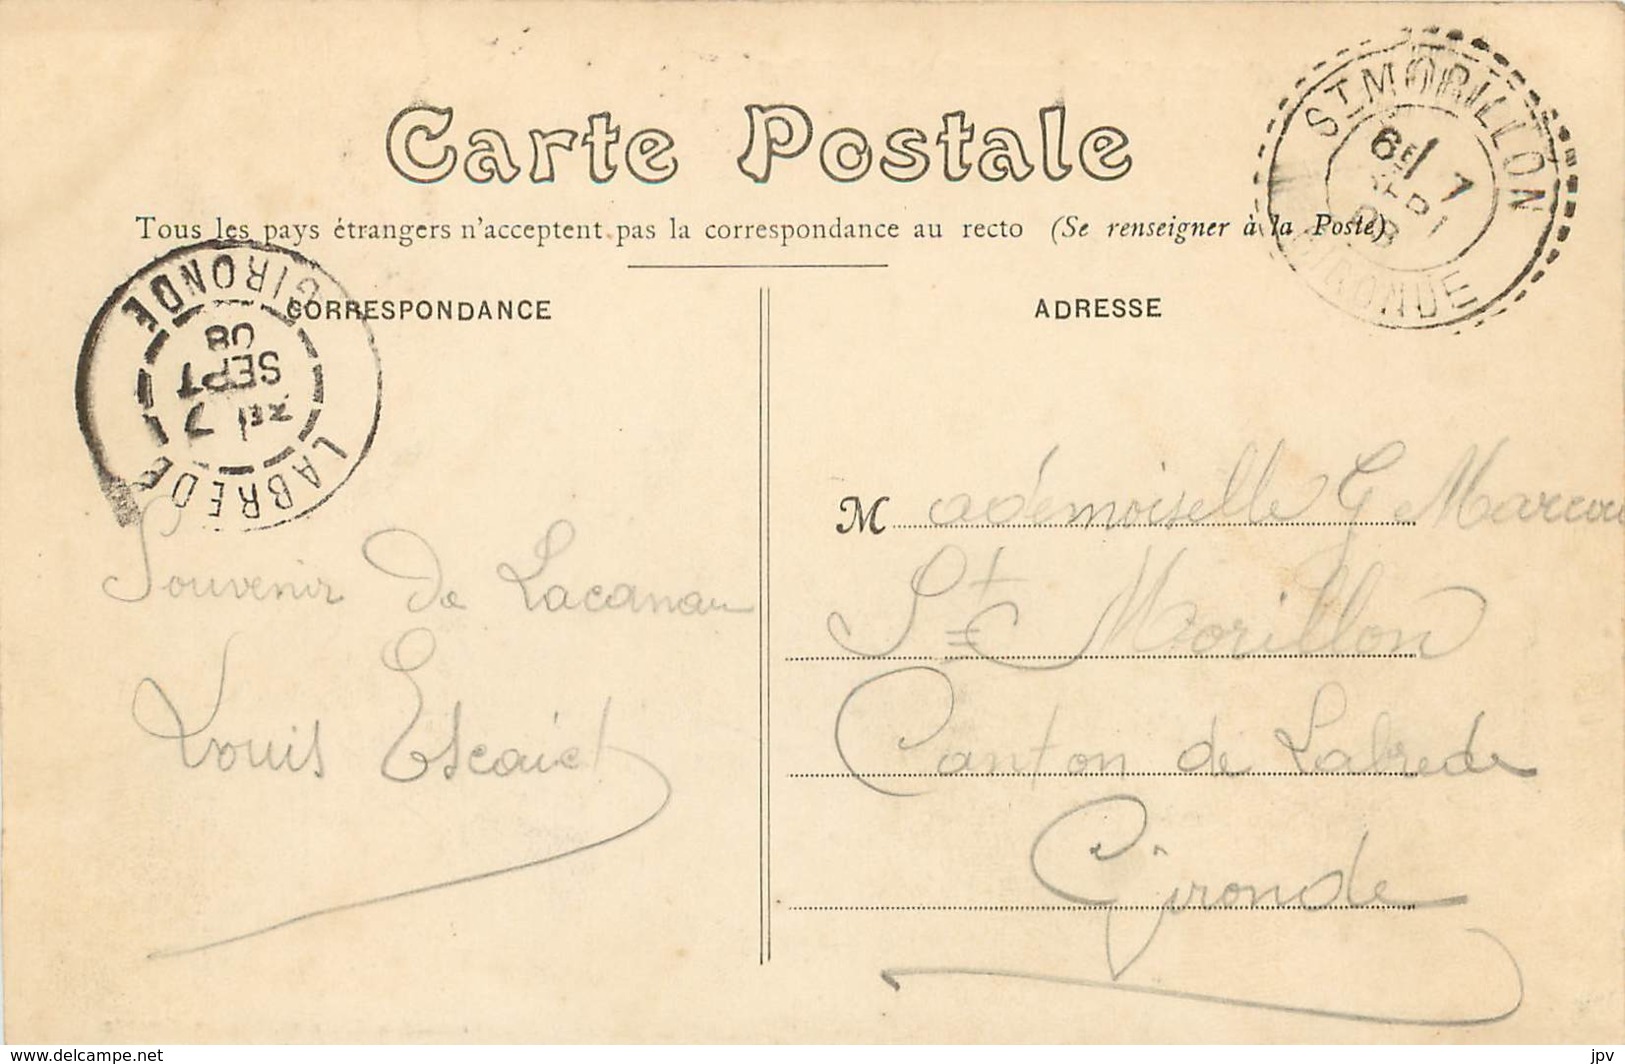 Carte Postale
Tous les pays étrangers n'acceptent pas la correspondance au recto (Se renseigner à la Poste)
CORRESPONDANCE
ADRESSE
ST MORILLON
6E 7
SEPT
08
GIRONDE
LABREDE
7
SEPT
08
GIRONDE
Souvenir de Lacanau
Louis
Mademoiselle G
St Morillon
Canton de Labrede
Gironde
www.delcampe.net
jpv